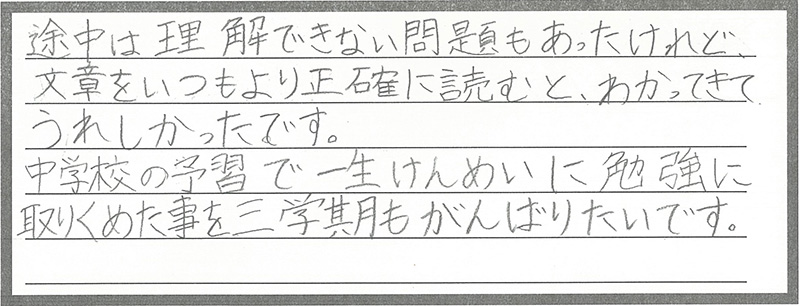 途中は理解できない問題もあったけれど、
文章をいつもより正確に読むと、わかってきて
うれしかったです。
中学校の予習で一生けんめいに勉強に
取りくめた事を三学期もがんばりたいです。